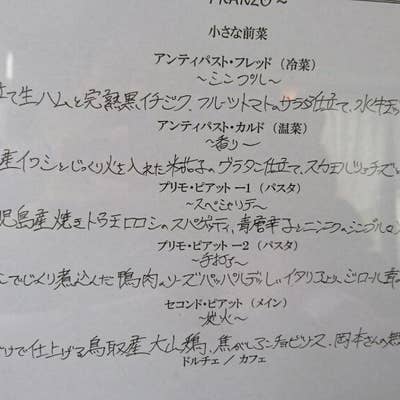 PRANZO ~
小さな前菜
アンティパスト・フレッド（冷菜）
～シンプル～
生ハムと完熟黒イチジク、フルーツトマトのサラダ仕立て、水牛
アンティパスト・カルド（温菜）
～香り～
産イワシとじっくり火を入れた米茄子のグラタン仕立て、スカモルツァチーズ
プリモ・ピアット ー1（パスタ）
～スペシャリテ～
児島産焼きトウモロコシのスパゲッティ、青唐辛子とニンニクのシンプル
プリモ・ピアット ー2（パスタ）
～手打ち～
でじっくり煮込んだ鴨肉のソースパッパルデッレ イタリア ジロール茸
セコンド・ピアット（メイン）
～炭火～
だけで仕上げる鳥取産大山鶏、焦がし ピソース、岡本さんの
ドルチェ / カフェ